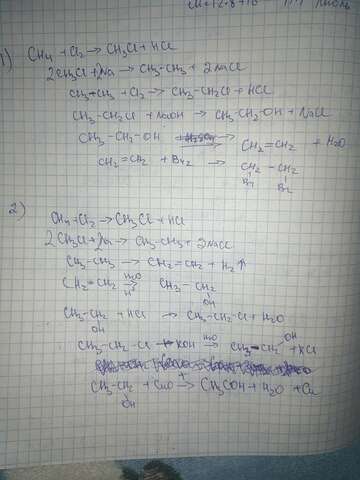 1) CH4 + Cl2 → CH3Cl + HCl
2CH3Cl + 2Na → CH3-CH3 + 2NaCl
CH3-CH3 + Cl2 → CH3-CH2Cl + HCl
CH3-CH2Cl + NaOH → CH3-CH2-OH + NaCl
CH3-CH2-OH → CH2=CH2 + H2O
CH2=CH2 + Br2 → CH2-CH2
Br Br
2)
CH4 + Cl2 → CH3Cl + HCl
2CH3Cl + 2Na → CH3-CH3 + 2NaCl
CH3-CH3 → CH2=CH2 + H2↑
CH2=CH2 H2O → H+ CH3-CH2
OH
CH3-CH2 + HCl → CH3-CH2-Cl + H2O
OH
CH3-CH2-Cl + KOH H2O → CH3-CH2 OH + KCl
CH3-CH2 + CuO t → CH3COH + H2O + Cu
OH